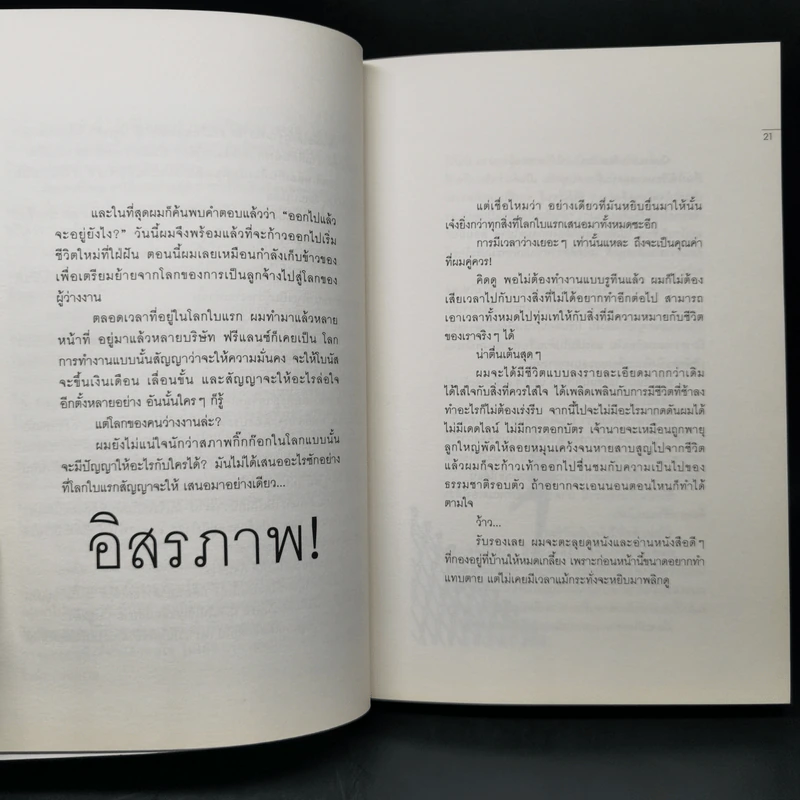 และในที่สุดผมก็ค้นพบคำตอบแล้วว่า “ออกไปแล้ว
จะอยู่ยังไง?” วันนี้ผมจึงพร้อมแล้วที่จะก้าวออกไปเริ่ม
ชีวิตใหม่ที่ใฝ่ฝัน ตอนนี้ผมเลยเหมือนกำลังเก็บข้าวของ
เพื่อเตรียมย้ายจากโลกของการเป็นลูกจ้างไปสู่โลกของ
ผู้ว่างงาน
ตลอดเวลาที่อยู่ในโลกใบแรก ผมทำมาแล้วหลาย
หน้าที่ อยู่มาแล้วหลายบริษัท ฟรีแลนซ์ก็เคยเป็น โลก
การทำงานแบบนั้นสัญญาว่าจะให้ความมั่นคง จะให้โบนัส
จะขึ้นเงินเดือน เลื่อนขั้น และสัญญาจะให้อะไรล่อใจ
อีกตั้งหลายอย่าง อันนั้นใครๆ ก็รู้
แต่โลกของคนว่างงานล่ะ?
ผมยังไม่แน่ใจนักว่าสภาพกิ๊กก๊อกในโลกแบบนั้น
จะมีปัญญาให้อะไรกับใครได้? มันไม่ได้เสนออะไรซักอย่าง
ที่โลกใบแรกสัญญาจะให้ เสนอมาอย่างเดียว...
อิสรภาพ!
21
แต่เชื่อไหมว่า อย่างเดียวที่มันหยิบยื่นมาให้นั้น
เจ๋งยิ่งกว่าทุกสิ่งที่โลกใบแรกเสนอมาทั้งหมดซะอีก
การมีเวลาว่างเยอะๆ เท่านั้นแหละ ถึงจะเป็นคุณค่า
ที่ผมคู่ควร!
คิดดู พอไม่ต้องทำงานแบบรูทีนแล้ว ผมก็ไม่ต้อง
เสียเวลาไปกับบางสิ่งที่ไม่ได้อยากทำอีกต่อไป สามารถ
เอาเวลาทั้งหมดไปทุ่มเทให้กับสิ่งที่มีความหมายกับชีวิต
ของเราจริงๆ ได้
น่าตื่นเต้นสุดๆ
ผมจะได้มีชีวิตแบบลงรายละเอียดมากกว่าเดิม
ได้ใส่ใจกับสิ่งที่ควรใส่ใจ ได้เพลิดเพลินกับการมีชีวิตที่ช้าลง
ทำอะไรก็ไม่ต้องเร่งรีบ จากนี้ไปจะไม่มีอะไรมากดดันผมได้
ไม่มีเดดไลน์ ไม่มีการตอกบัตร เจ้านายจะเหมือนถูกพายุ
ลูกใหญ่พัดให้ลอยหมุนเคว้งจนหายสาบสูญไปจากชีวิต
แล้วผมก็จะก้าวเท้าออกไปชื่นชมกับความเป็นไปของ
ธรรมชาติรอบตัว ถ้าอยากจะเอนนอนตอนไหนก็ทำได้
ตามใจ
ว้าว...
รับรองเลย ผมจะตะลุยดูหนังและอ่านหนังสือดีๆ
ที่กองอยู่ที่บ้านให้หมดเกลี้ยง เพราะก่อนหน้านี้ขนาดอยากทำ
แทบตาย แต่ไม่เคยมีเวลาแม้กระทั่งจะหยิบมาพลิกดู